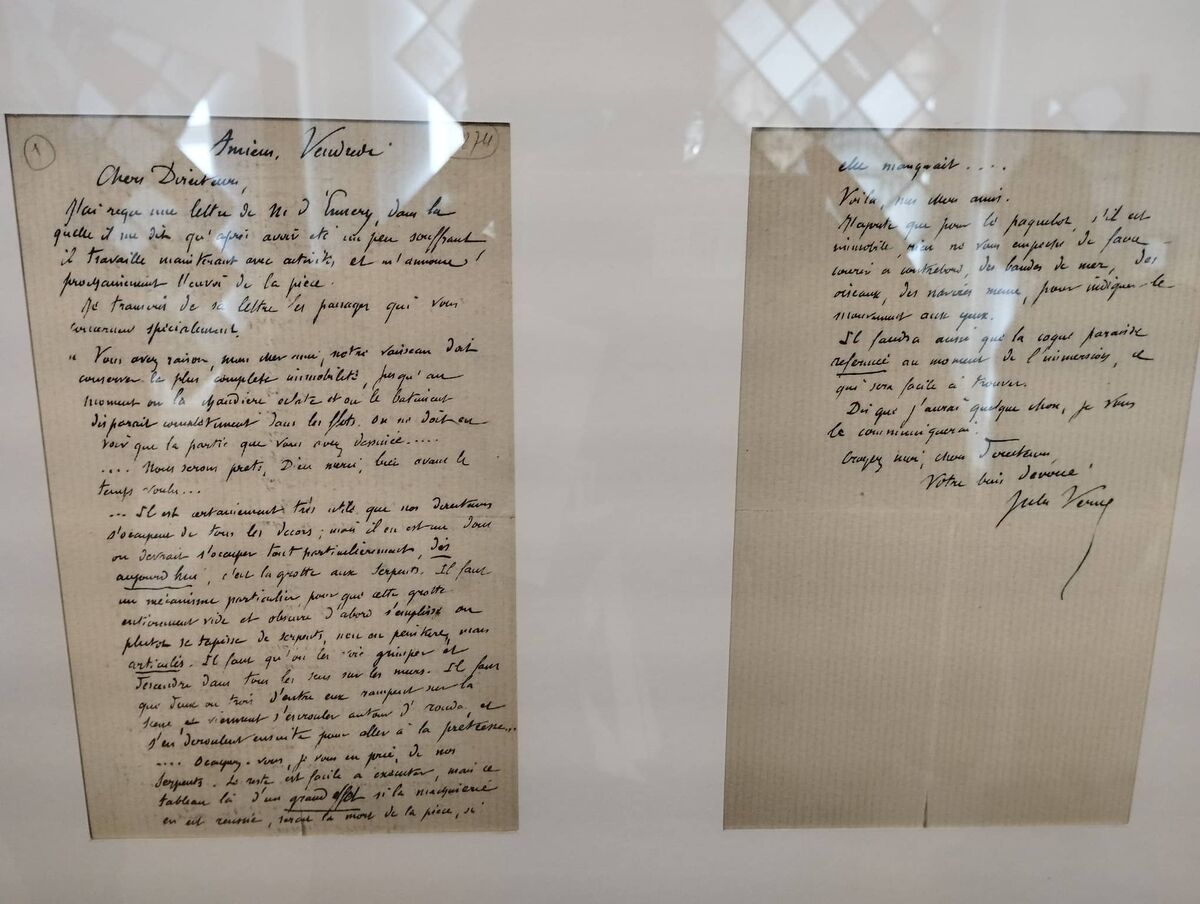 1
274
Amiens, Vendredi
Chers Directeurs,
J'ai reçu une lettre de M. d'Ennery, dans la
quelle il me dit qu'après avoir été un peu souffrant
il travaille maintenant avec activité, et m'annonce
prochainement l'envoi de la pièce.
Je transcris de sa lettre les passages qui vous
concernent spécialement.
" Vous avez raison, mon cher ami, notre vaisseau doit
conserver la plus complète immobilité, jusqu'au
moment où la chaudière éclate et où le bâtiment
disparait complètement dans les flots. On ne doit en
voir que la partie que vous avez dessinée.....
.... Nous serons prêts, Dieu merci, bien avant le
temps voulu...
... Il est certainement très utile que nos directeurs
s'occupent de tous les décors ; mais il en est un dont
on devrait s'occuper tout particulièrement, dès
aujourd'hui, c'est la grotte aux serpents. Il faut
un mécanisme particulier pour que cette grotte
entièrement vide et obscure d'abord s'emplisse ou
plutôt se tapisse de serpents, non en peinture, mais
articulés. Il faut qu'on les voie grimper et
descendre dans tous les sens sur les murs. Il faut
que deux ou trois d'entre eux rampent sur la
scène, et viennent s'enrouler autour d'Aouda, et
s'en déroulent ensuite pour aller à la prêtresse...
.... Occupez-vous, je vous en prie, de nos
serpents. Le reste est facile à exécuter, mais ce
tableau là d'un grand effet si la machinerie
en est réussie, serait la mort de la pièce, si
elle manquait....
Voilà, mes chers amis.
J'ajoute que pour le paquebot, s'il est
immobile, rien ne vous empêche de faire
courir à contrebord, des bandes de mer, des
oiseaux, des navires même, pour indiquer le
mouvement aux yeux.
Il faudra aussi que la coque paraisse
refermée au moment de l'immersion, ce
qui sera facile à trouver.
Dès que j'aurai quelque chose, je vous
le communiquerai.
Croyez moi, chers Directeurs,
Votre bien dévoué
Jules Verne